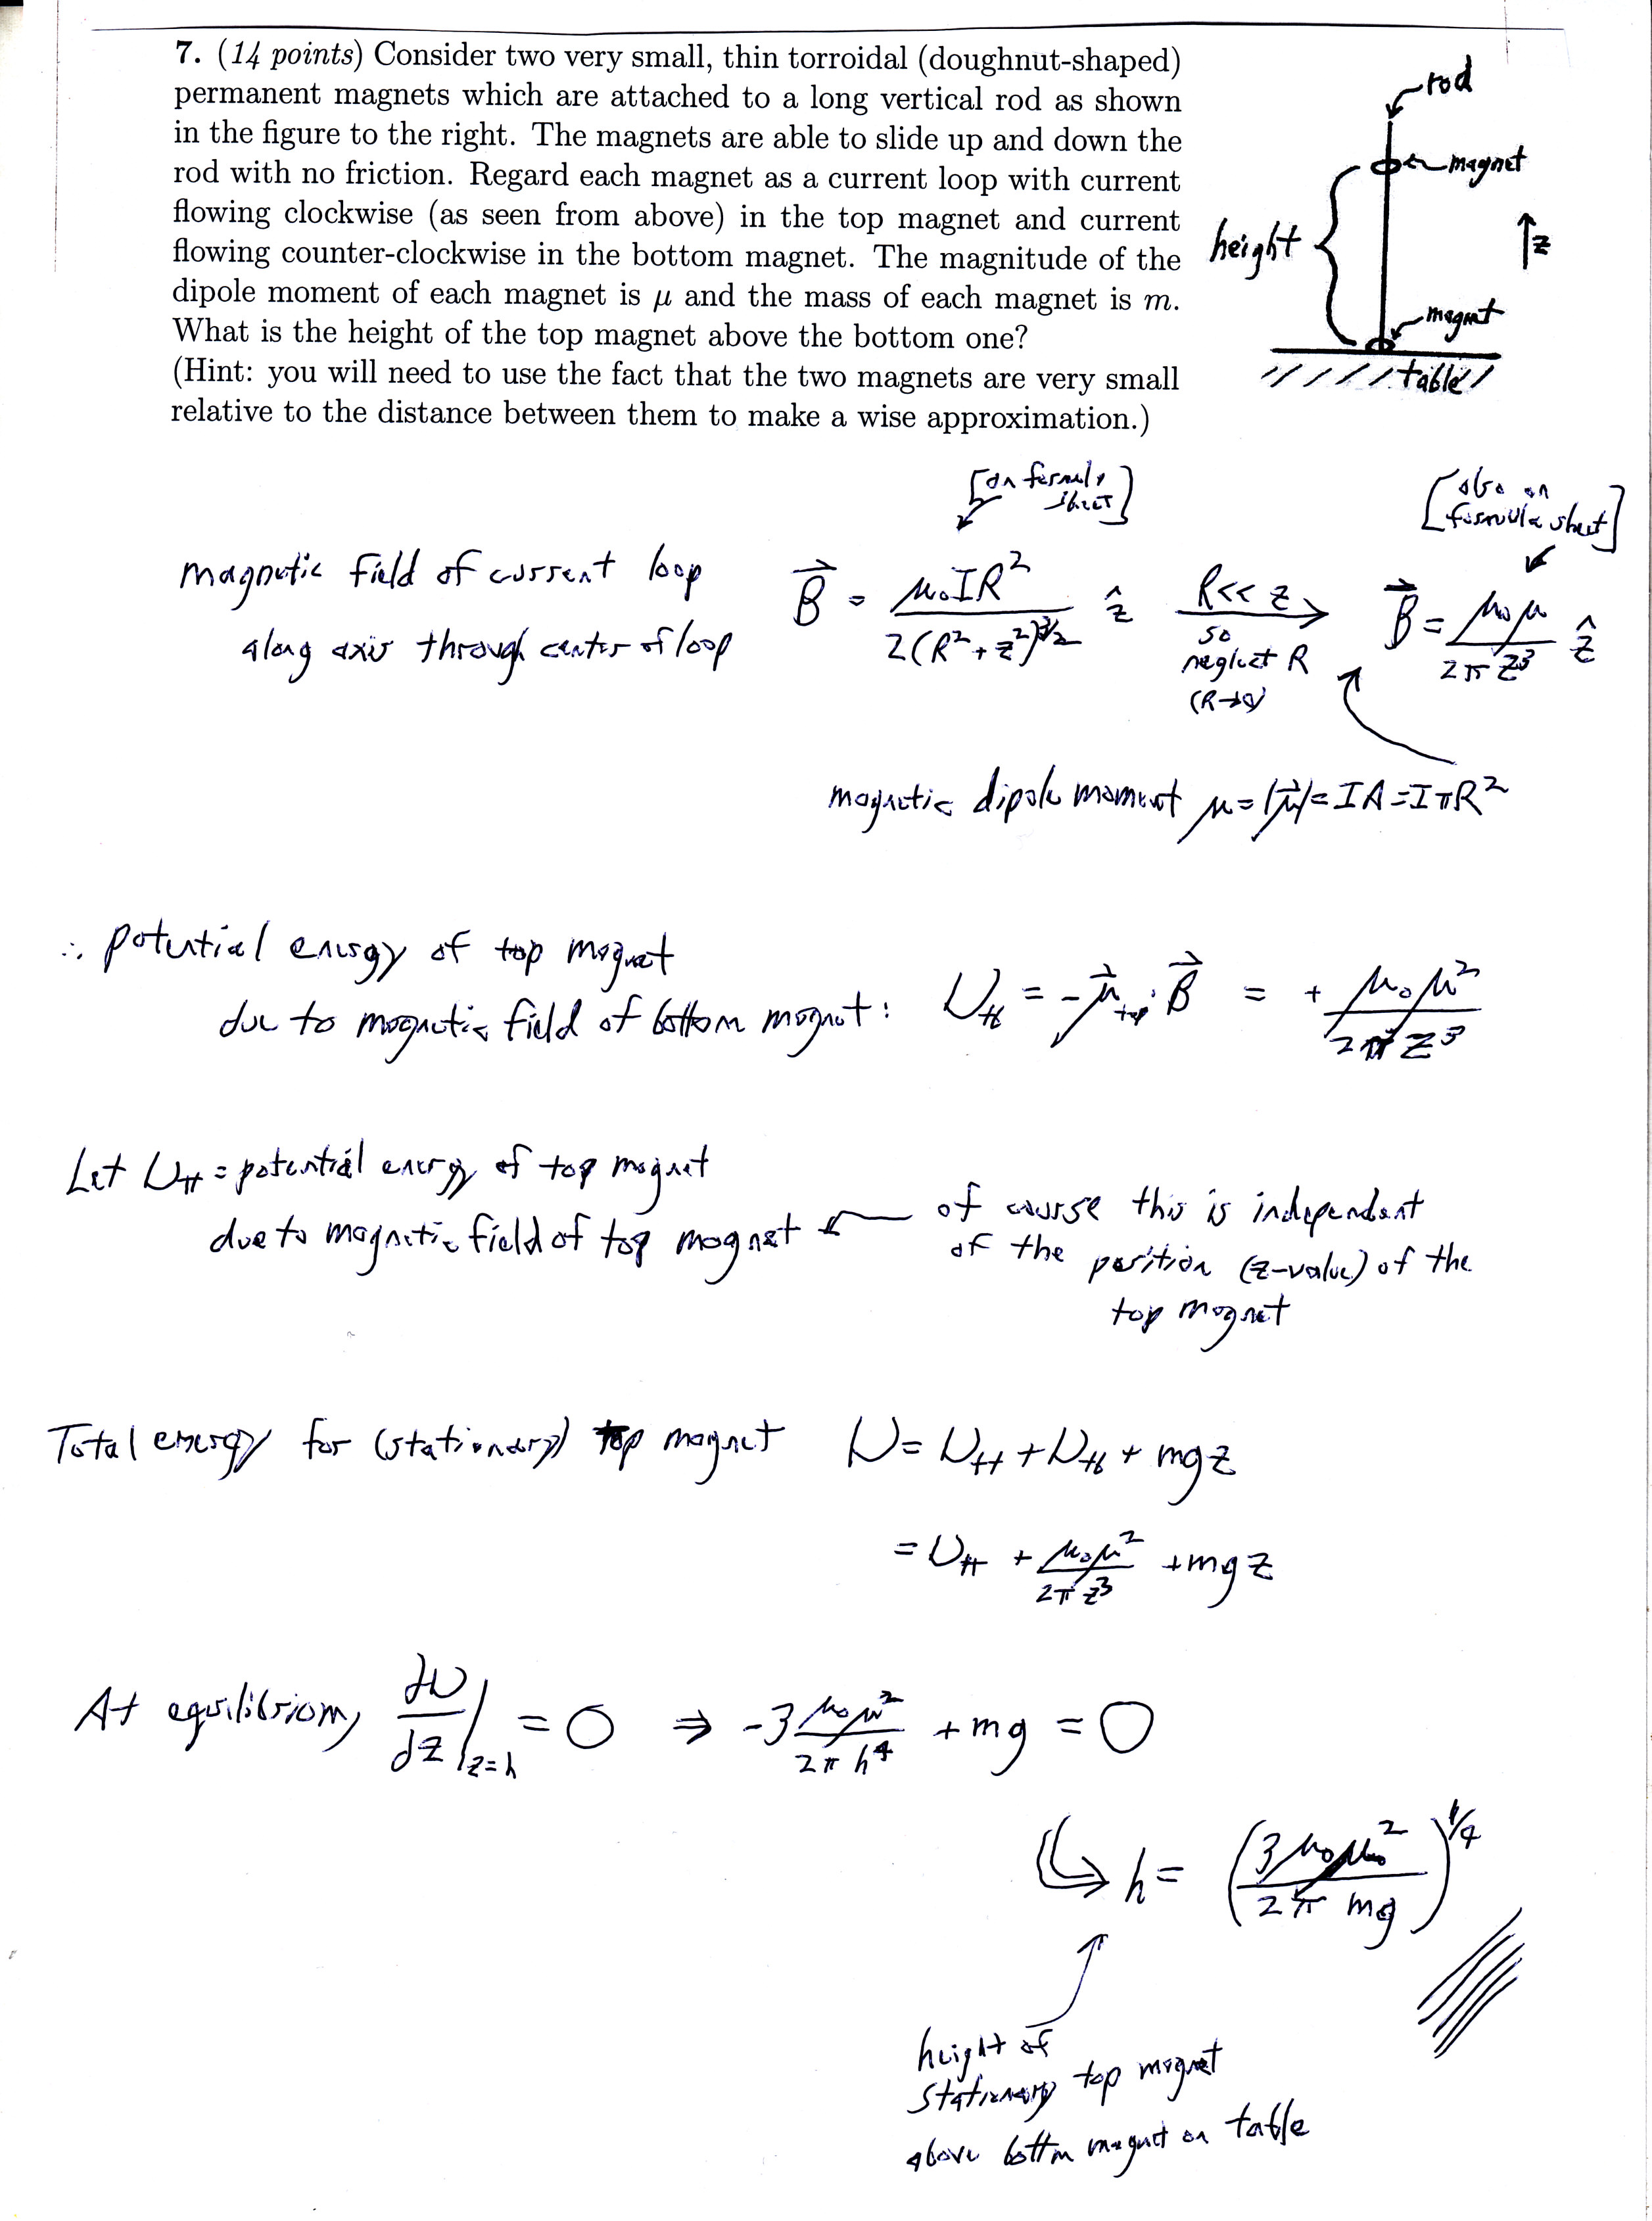 7. (14 points) Consider two very small, thin torroidal (doughnut-shaped)
permanent magnets which are attached to a long vertical rod as shown
in the figure to the right. The magnets are able to slide up and down the
rod with no friction. Regard each magnet as a current loop with current
flowing clockwise (as seen from above) in the top magnet and current
flowing counter-clockwise in the bottom magnet. The magnitude of the
dipole moment of each magnet is μ and the mass of each magnet is m.
What is the height of the top magnet above the bottom one?
(Hint: you will need to use the fact that the two magnets are very small
relative to the distance between them to make a wise approximation.)
rod
magnet
height
z
magnet
table
[on formula sheet]
[also on formula sheet]
magnetic field of current loop
along axis through center of loop
B⃗ = μ₀IR² / 2(R²+z²)^3/2 ẑ
R<<z
so
neglect R
(R→0)
B⃗ = μ₀μ / 2πz³ ẑ
magnetic dipole moment μ=|μ⃗|=IA=IπR²
∴ potential energy of top magnet
due to magnetic field of bottom magnet: U_tb = -μ⃗_top·B⃗ = + μ₀μ² / 2πz³
Let U_tt = potential energy of top magnet
due to magnetic field of top magnet
of course this is independent
of the position (z-value) of the
top magnet
Total energy for (stationary) top magnet U = U_tt + U_tb + mgz
= U_tt + μ₀μ² / 2πz³ + mgz
At equilibrium, dU/dz |z=h = 0 ⇒ -3 μ₀μ² / 2πh⁴ + mg = 0
h = (3μ₀μ² / 2π mg)^1/4
height of
stationary top magnet
above bottom magnet on table